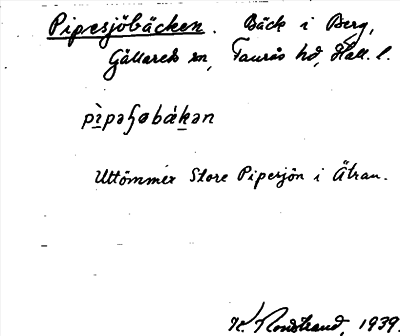 Pipesjöbäcken. Bäck i Berg,
Gällareds sn, Faurås hd, Hall. l.
pìpəɧøbákən
Uttömmer Store Pipesjön i Ätran.
1939.